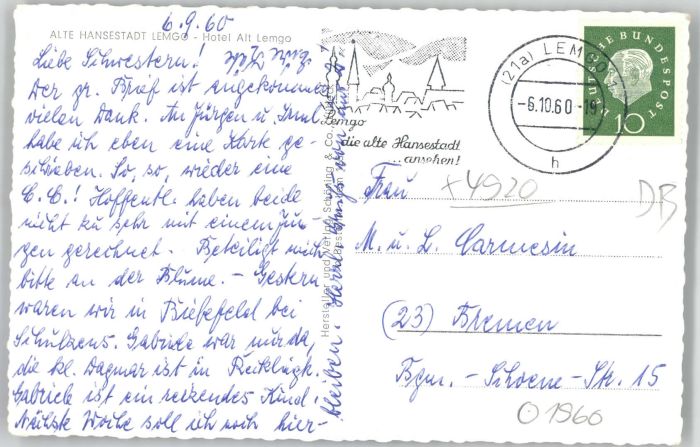 6.9.60
ALTE HANSESTADT LEMGO - Hotel Alt Lemgo
Liebe Schwestern!
Der gr. Brief ist angekommen
vielen Dank. An Jürgen u.
habe ich eben eine Karte ge-
schrieben. So, so, wieder eine
E.C.! Hoffentl. haben beide
nicht zu sehr mit einem Jun-
gen gerechnet. Beteiligt mich
bitte an der Blume. - Gestern
waren wir in Bielefeld bei
Schulzens. Gabriele war nur da,
die kl. Dagmar ist in Recklingh.
Gabriele ist ein reizendes Kind.
Nächste Woche soll ich noch hier-
bleiben. Herzl. Grüße von
Hersteller und Verlag Schöning & Co.
Lemgo
die alte Hansestadt
...ansehen!
(21a) LEMGO
-6.10.60-19
h
DEUTSCHE BUNDESPOST
10
Frau
+4920
DB
M. u. L. Carmesin
(23) Bremen
Bgm.-Schoene-Str. 15
O 1960